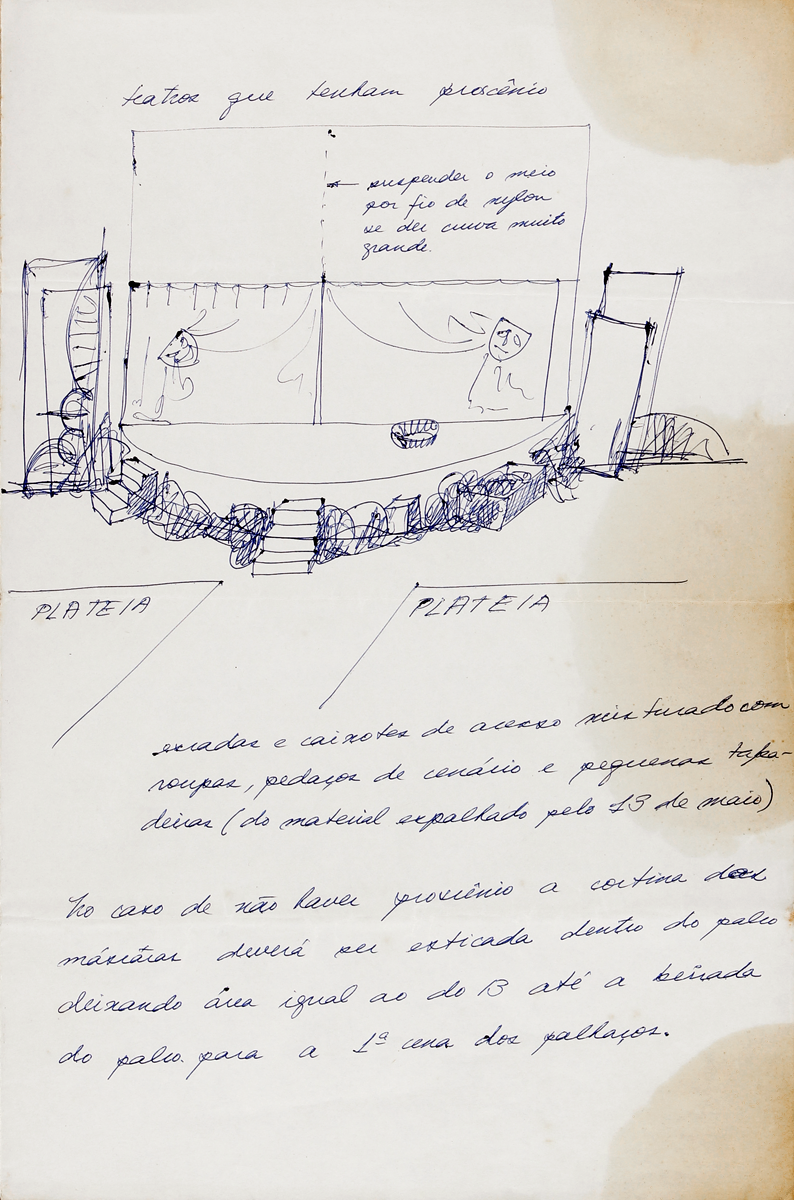 teatros que tenham proscênio
suspender o meio
por fio de nylon
se der curva muito
grande.
PLATEIA PLATEIA
escadas e caixotes de acesso misturado com
roupas, pedaços de cenário e pequenas tapa-
deiras (do material espalhado pelo 13 de maio)
No caso de não haver proscênio a cortina das
máscaras deverá ser esticada dentro do palco
deixando área igual ao do 13 até a beirada
do palco para a 1ª cena dos palhaços.